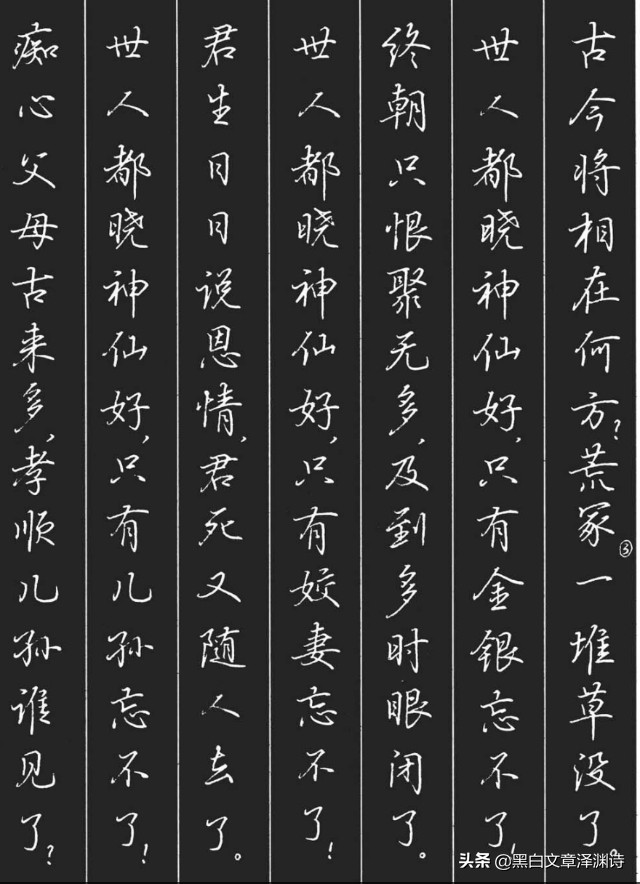 古今将相在何方?荒冢③一堆草没了。
世人都晓神仙好,只有金银忘不了!
终朝只恨聚无多,及到多时眼闭了。
世人都晓神仙好,只有姣妻忘不了!
君生日日说恩情,君死又随人去了。
世人都晓神仙好,只有儿孙忘不了!
痴心父母古来多,孝顺儿孙谁见了?
头条 @黑白文章泽渊诗